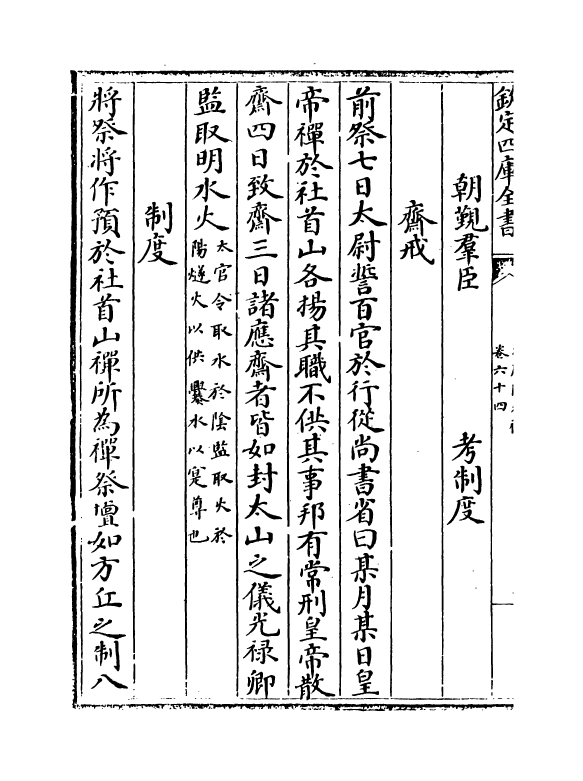 欽定四庫全書
卷六十四
朝覲羣臣 考制度
齋戒
前祭七日太尉誓百官於行從尚書省曰某月某日皇
帝禪於社首山各揚其職不供其事邦有常刑皇帝散
齋四日致齋三日諸應齋者皆如封太山之儀光禄卿
監取明水火太官令取水於陰監取火於
陽燧火以供爨水以寔尊也
制度
將祭将作預於社首山禪所為禪祭壇如方丘之制八